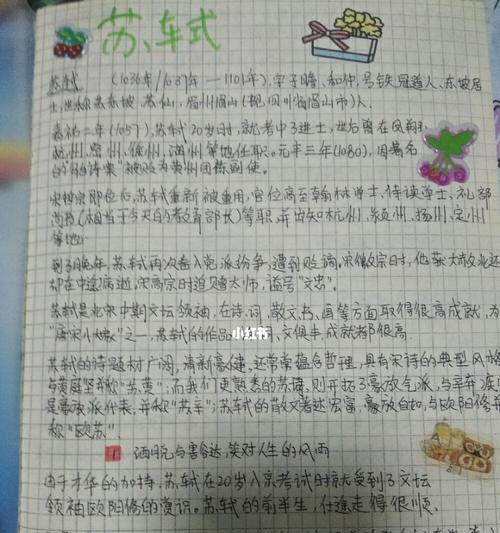 苏轼
苏轼 (1036年/1037年—1101年),字子瞻、和仲,号铁冠道人、东坡居
士,世称苏东坡、苏仙,眉州眉山(现四川省眉山市)人。
嘉祐二年(1057),苏轼20岁时,就考中了进士,此后曾在凤翔
杭州、密州、徐州、湖州等地任职。元丰三年(1080),因著名
的"乌台诗案"被贬为黄州团练副使。
宋哲宗即位后,苏轼重新被重用,官位高至翰林学士、侍读学士、礼部
尚书(相当于今天的教育部长)等职,并出知杭州、颍州、扬州、定州
等地。
到了晚年,苏轼再次卷入党派纷争,遭到贬谪。宋徽宗时,他获大赦北还
却在中途病逝。宋高宗时追赠太师,谥号"文忠"。
苏轼是北宋中期文坛领袖,在诗、词、散文、书、画等方面取得很高成就,为
"唐宋八大家"之一,苏轼的作品 文俱丰,成就都很高
小红书
苏轼的诗题材广阔,清新豪健,还常常蕴含哲理,具有宋诗的典型风格
与黄庭坚并称"苏黄";而我们更熟悉的苏词,则开拓了豪放气派,与辛弃疾
是豪放派代表,并称"苏辛";苏轼的散文著述宏富,豪放自如,与欧阳修并
称"欧苏"
1 洒脱与豁达,笑对人生的风雨
由于才华的加持,苏轼在20岁入京考试时就受到了文坛
领袖欧阳修的赏识。苏轼的前半生,仕途走得很顺、